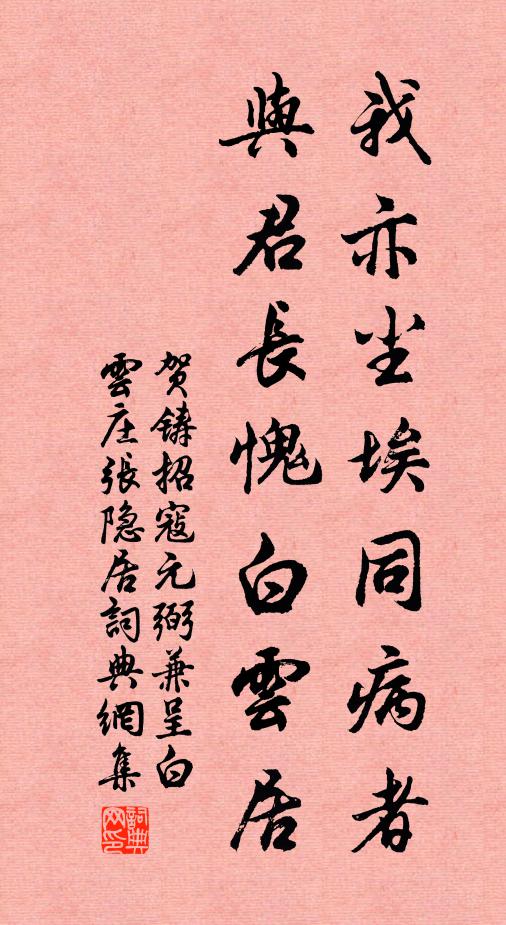 我亦尘埃同病者
與君長愧白雲居
贺铸招寇元弼兼呈白
雲庄張隐居詞典網集
詞典
网印